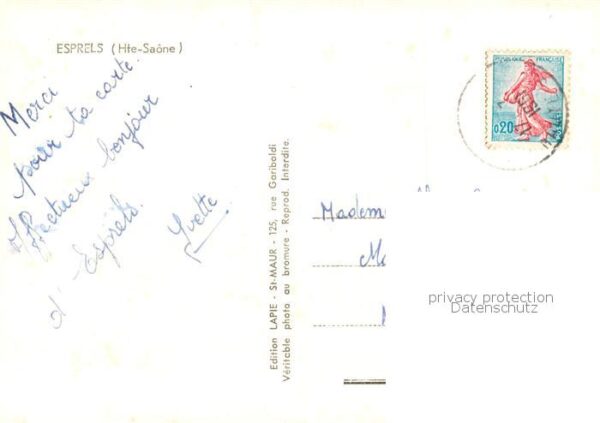 ESPRELS (Hte-Saône)
Merci
pour ta carte.
Affectueux bonjour
d'Esprels.
Yvette
Edition LAPIE - St-MAUR - 125, rue Garibaldi
Véritable photo au bromure - Reprod. Interdite.
0,20
Madem
privacy protection
Datenschutz